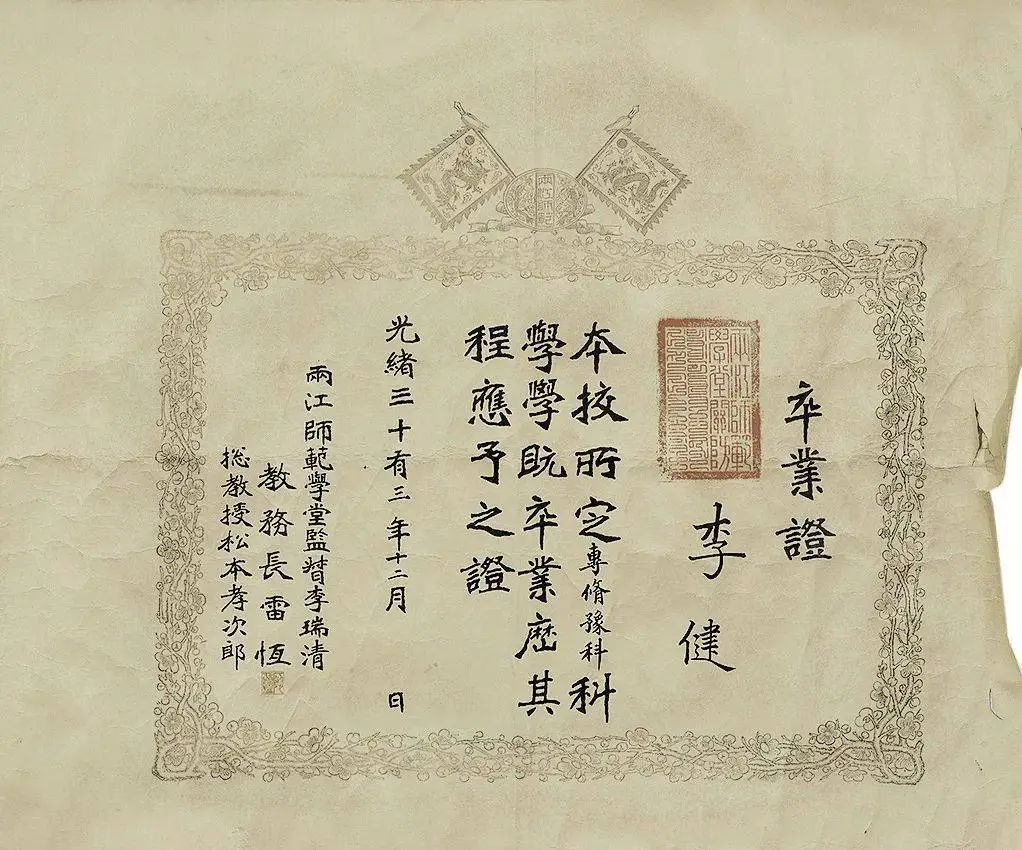 兩江師範
卒業證
兩江師範學堂關防
李健
本校所定專脩豫科科
學學既卒業歷其
程應予之證
光緒三十有三年十二月 日
兩江師範學堂監督李瑞清
教務長雷恆
総教授松本孝次郎